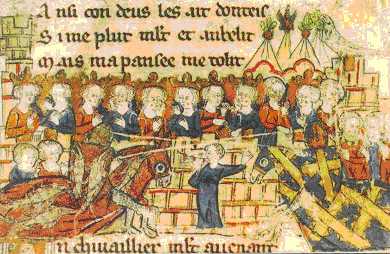 A nsi con deus les uit donteis
S i me plut mlt et enbelit
M ais ma pansee me tolit
n chiuaillier mlt auenant